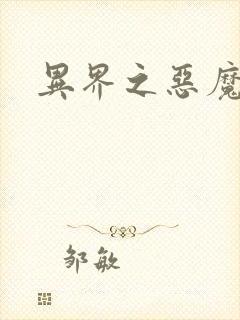 異界之惡魔
邹敏